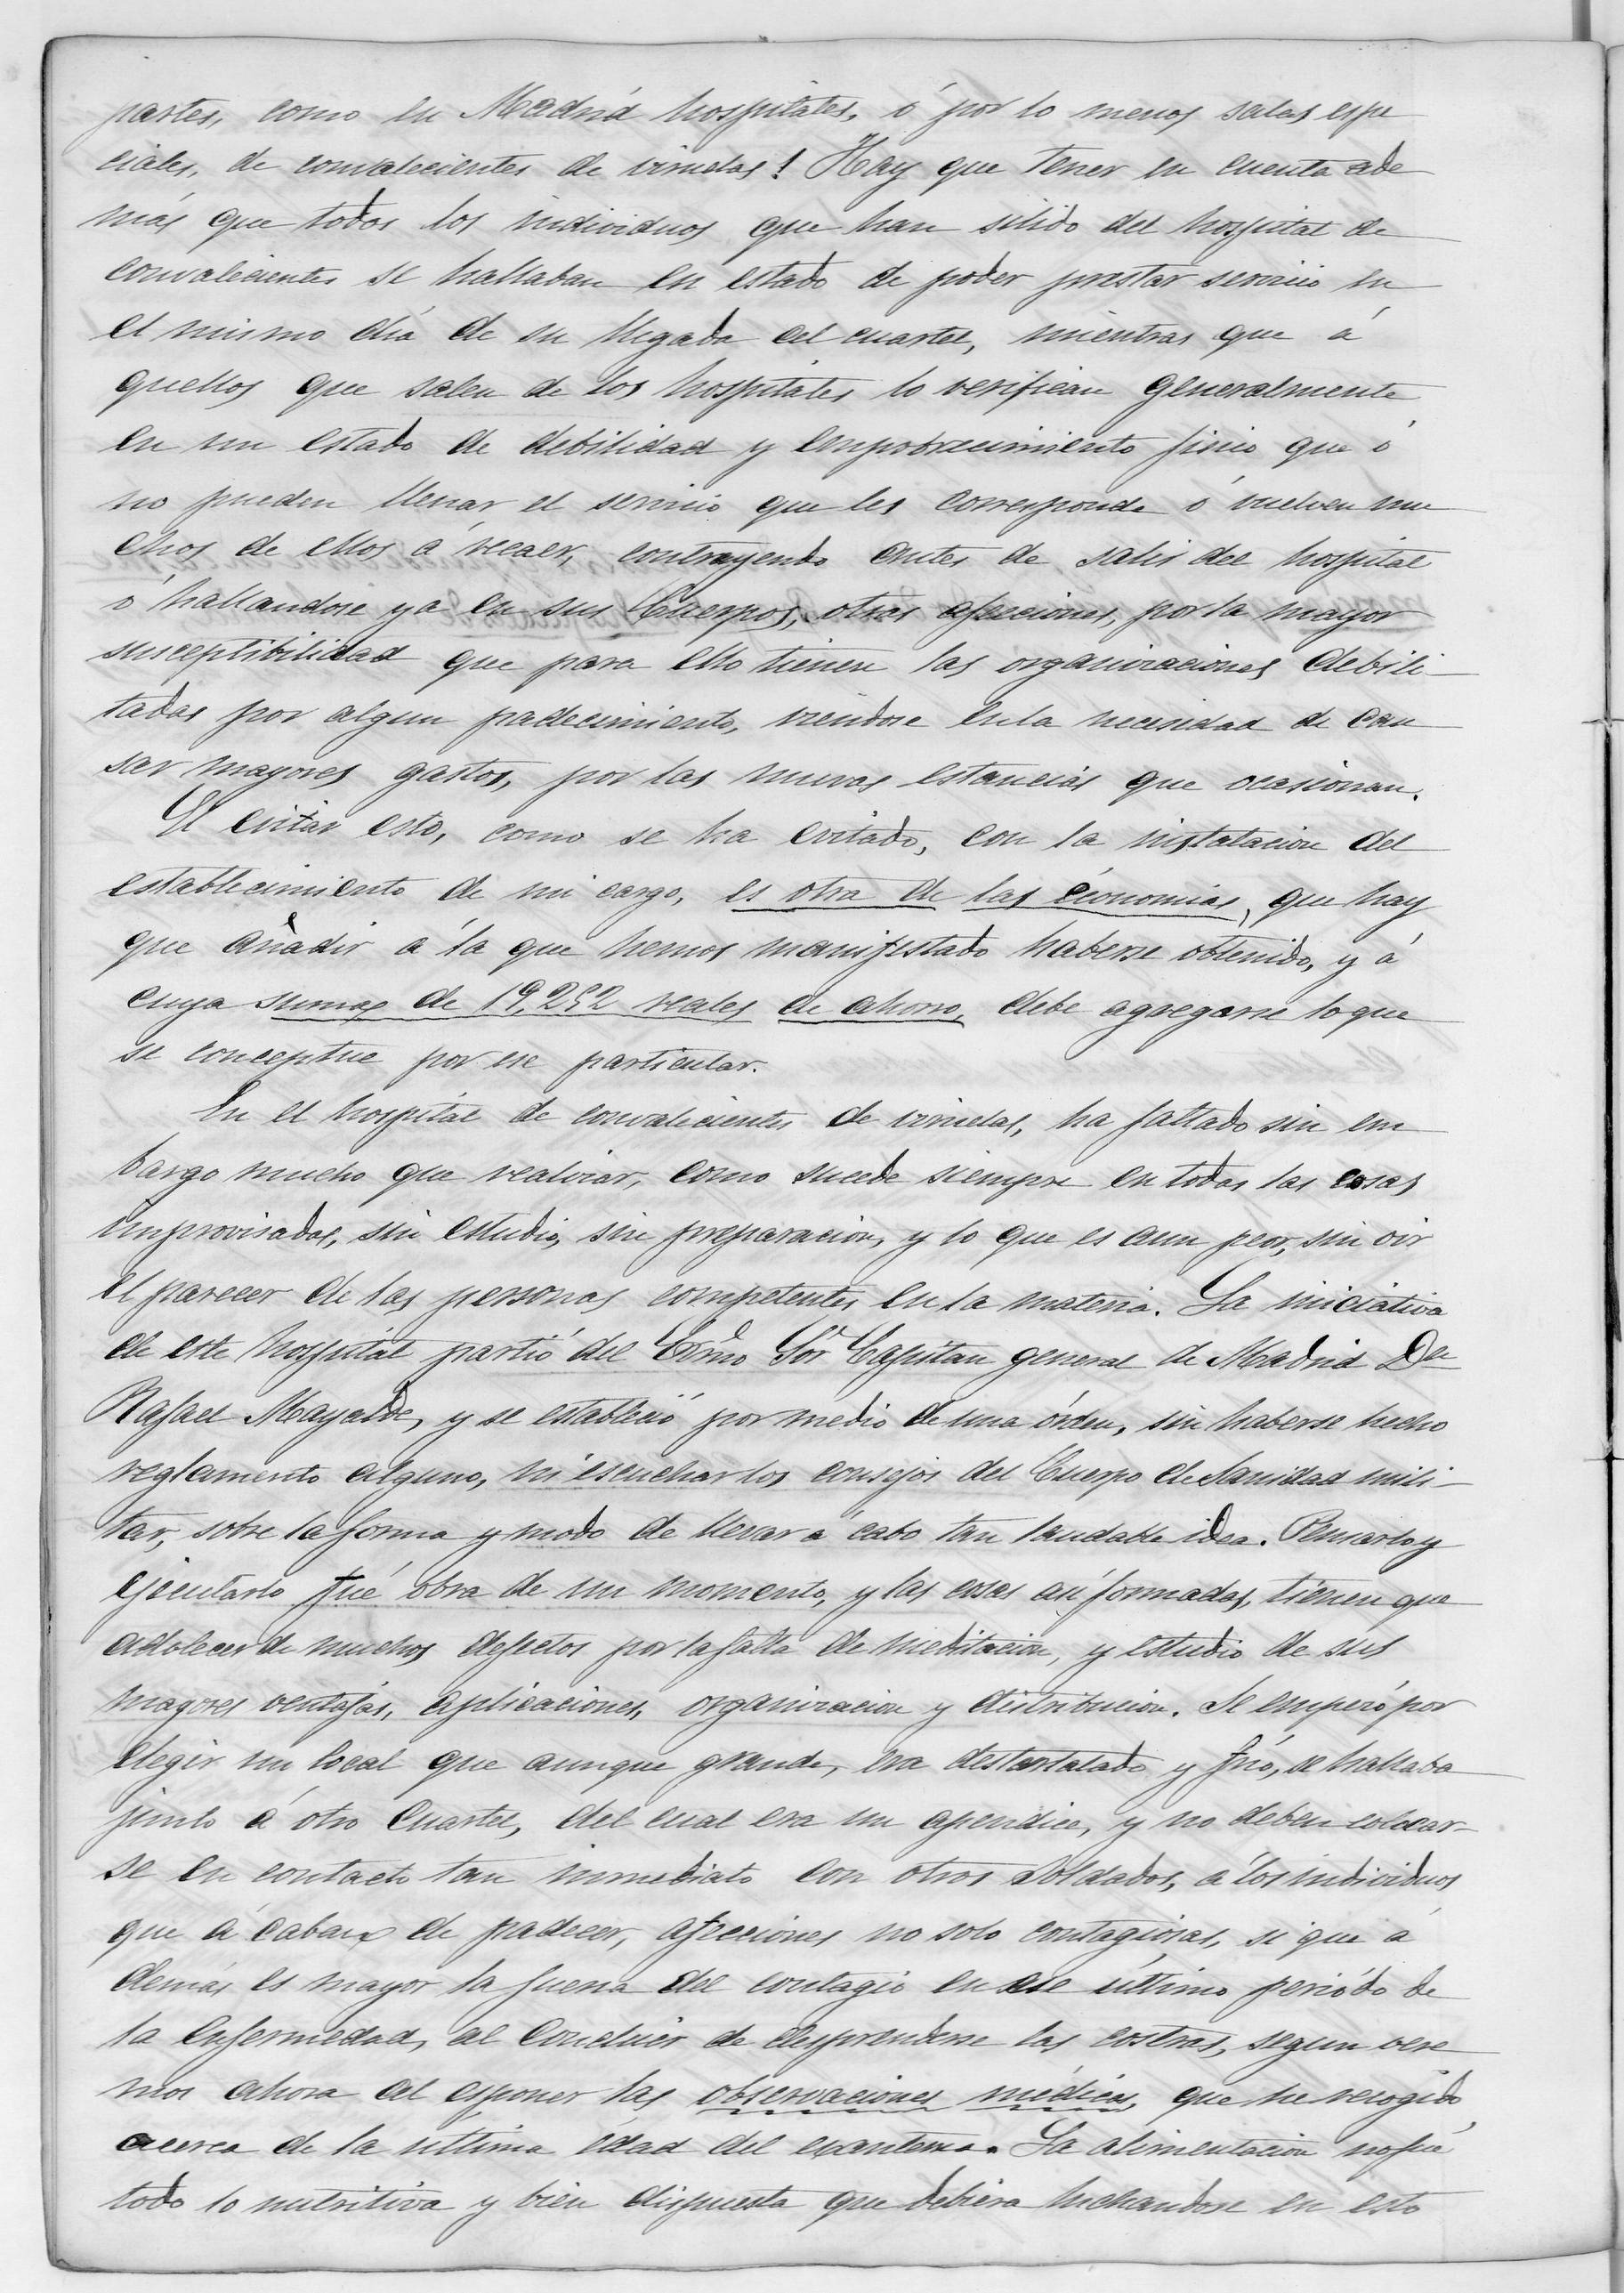 partes, como en Madrid hospitales, ó por lo menos salas espe
ciales, de convalecientes de viruelas! Hay que tener en cuenta ade
más que todos los individuos que han silido del hospital de
convalecientes se hallaban en estado de poder prestar servicio en
el mismo día de su llegada al cuartel, mientras que á
quellos que salen de los hospitales lo verifican generalmente
en un estado de debilidad y empobrecimiento fisico que ó
no pueden llenar el servicio que les corresponde ó vuelven mu
chos de ellos á recaer, contrayendo antes de salir del hospital
ó hallandose ya en sus Cuerpos, otras afecciones, por la mayor
susceptibilidad que para ello tienen las organizaciones debili-
tadas por algun padecimiento, viendose en la necesidad de cau
sar mayores gastos, por las nuevas estancias que ocasionan.
El evitar esto, como se ha evitado, con la instalacion del
establecimiento de mi cargo, es otra de las economias, que hay
que añadir á la que hemos manifestado haberse obtenido, y á
cuya suma de 19,252 reales de ahorro, debe agregarse lo que
se conceptue por ese particular.
En el hospital de convalecientes de viruelas, ha faltado sin em
bargo mucho que realizar, como sucede siempre en todas las cosas
improvisadas, sin estudio, sin preparacion, y lo que es aun peor, sin oir
el parecer de las personas competentes en la materia. La iniciativa
de este hospital partió del Ecmo Sor Capitan general de Madrid Dn
Rafael Mayalde, y se estableció por medio de una órden, sin haberse hecho
reglamento alguno, ni escuchar los consejos del Cuerpo de Sanidad mili-
tar, sobre la forma y modo de llevar á cabo tan laudable idea. Pensarlo y
ejecutarlo fué obra de un momento, y las cosas asi formadas, tienen que
adolecer de muchos defectos por la falta de meditacion, y estudio de sus
mayores ventajas, aplicaciones, organizacion y distribucion. Se empezó por
elegir un local que aunque grande, era destartalado y frio, se hallaba
junto á otro Cuartel, del cual era un apendice, y no deben colocar-
se en contacto tan inmediato con otros soldados, á los individuos
que á caban de padecer, afecciones no solo contagiosas, si que á
demás es mayor la fuerza del contagio en ese último periódo de
la enfermedad, al concluir de desprenderse las costras, segun vere
mos ahora al esponer las observaciones médicas, que he recogido
acerca de la ultima edad del exantema. La alimentacion no fué
todo lo nutritiva y bien dispuesta que debiera luchandose en esto